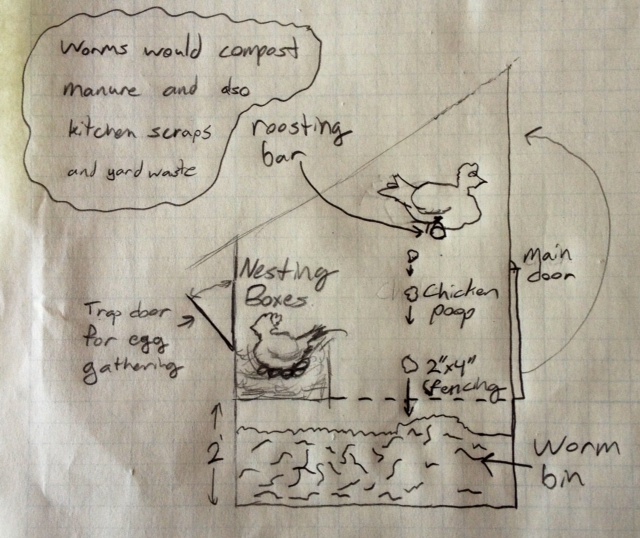 Worms would compost
manure and also
kitchen scraps
and yard waste
roosting
bar
Nesting
Boxes
Trap door
for egg
gathering
Main
door
Chicken
poop
2"x4"
fencing
2'
Worm
bin